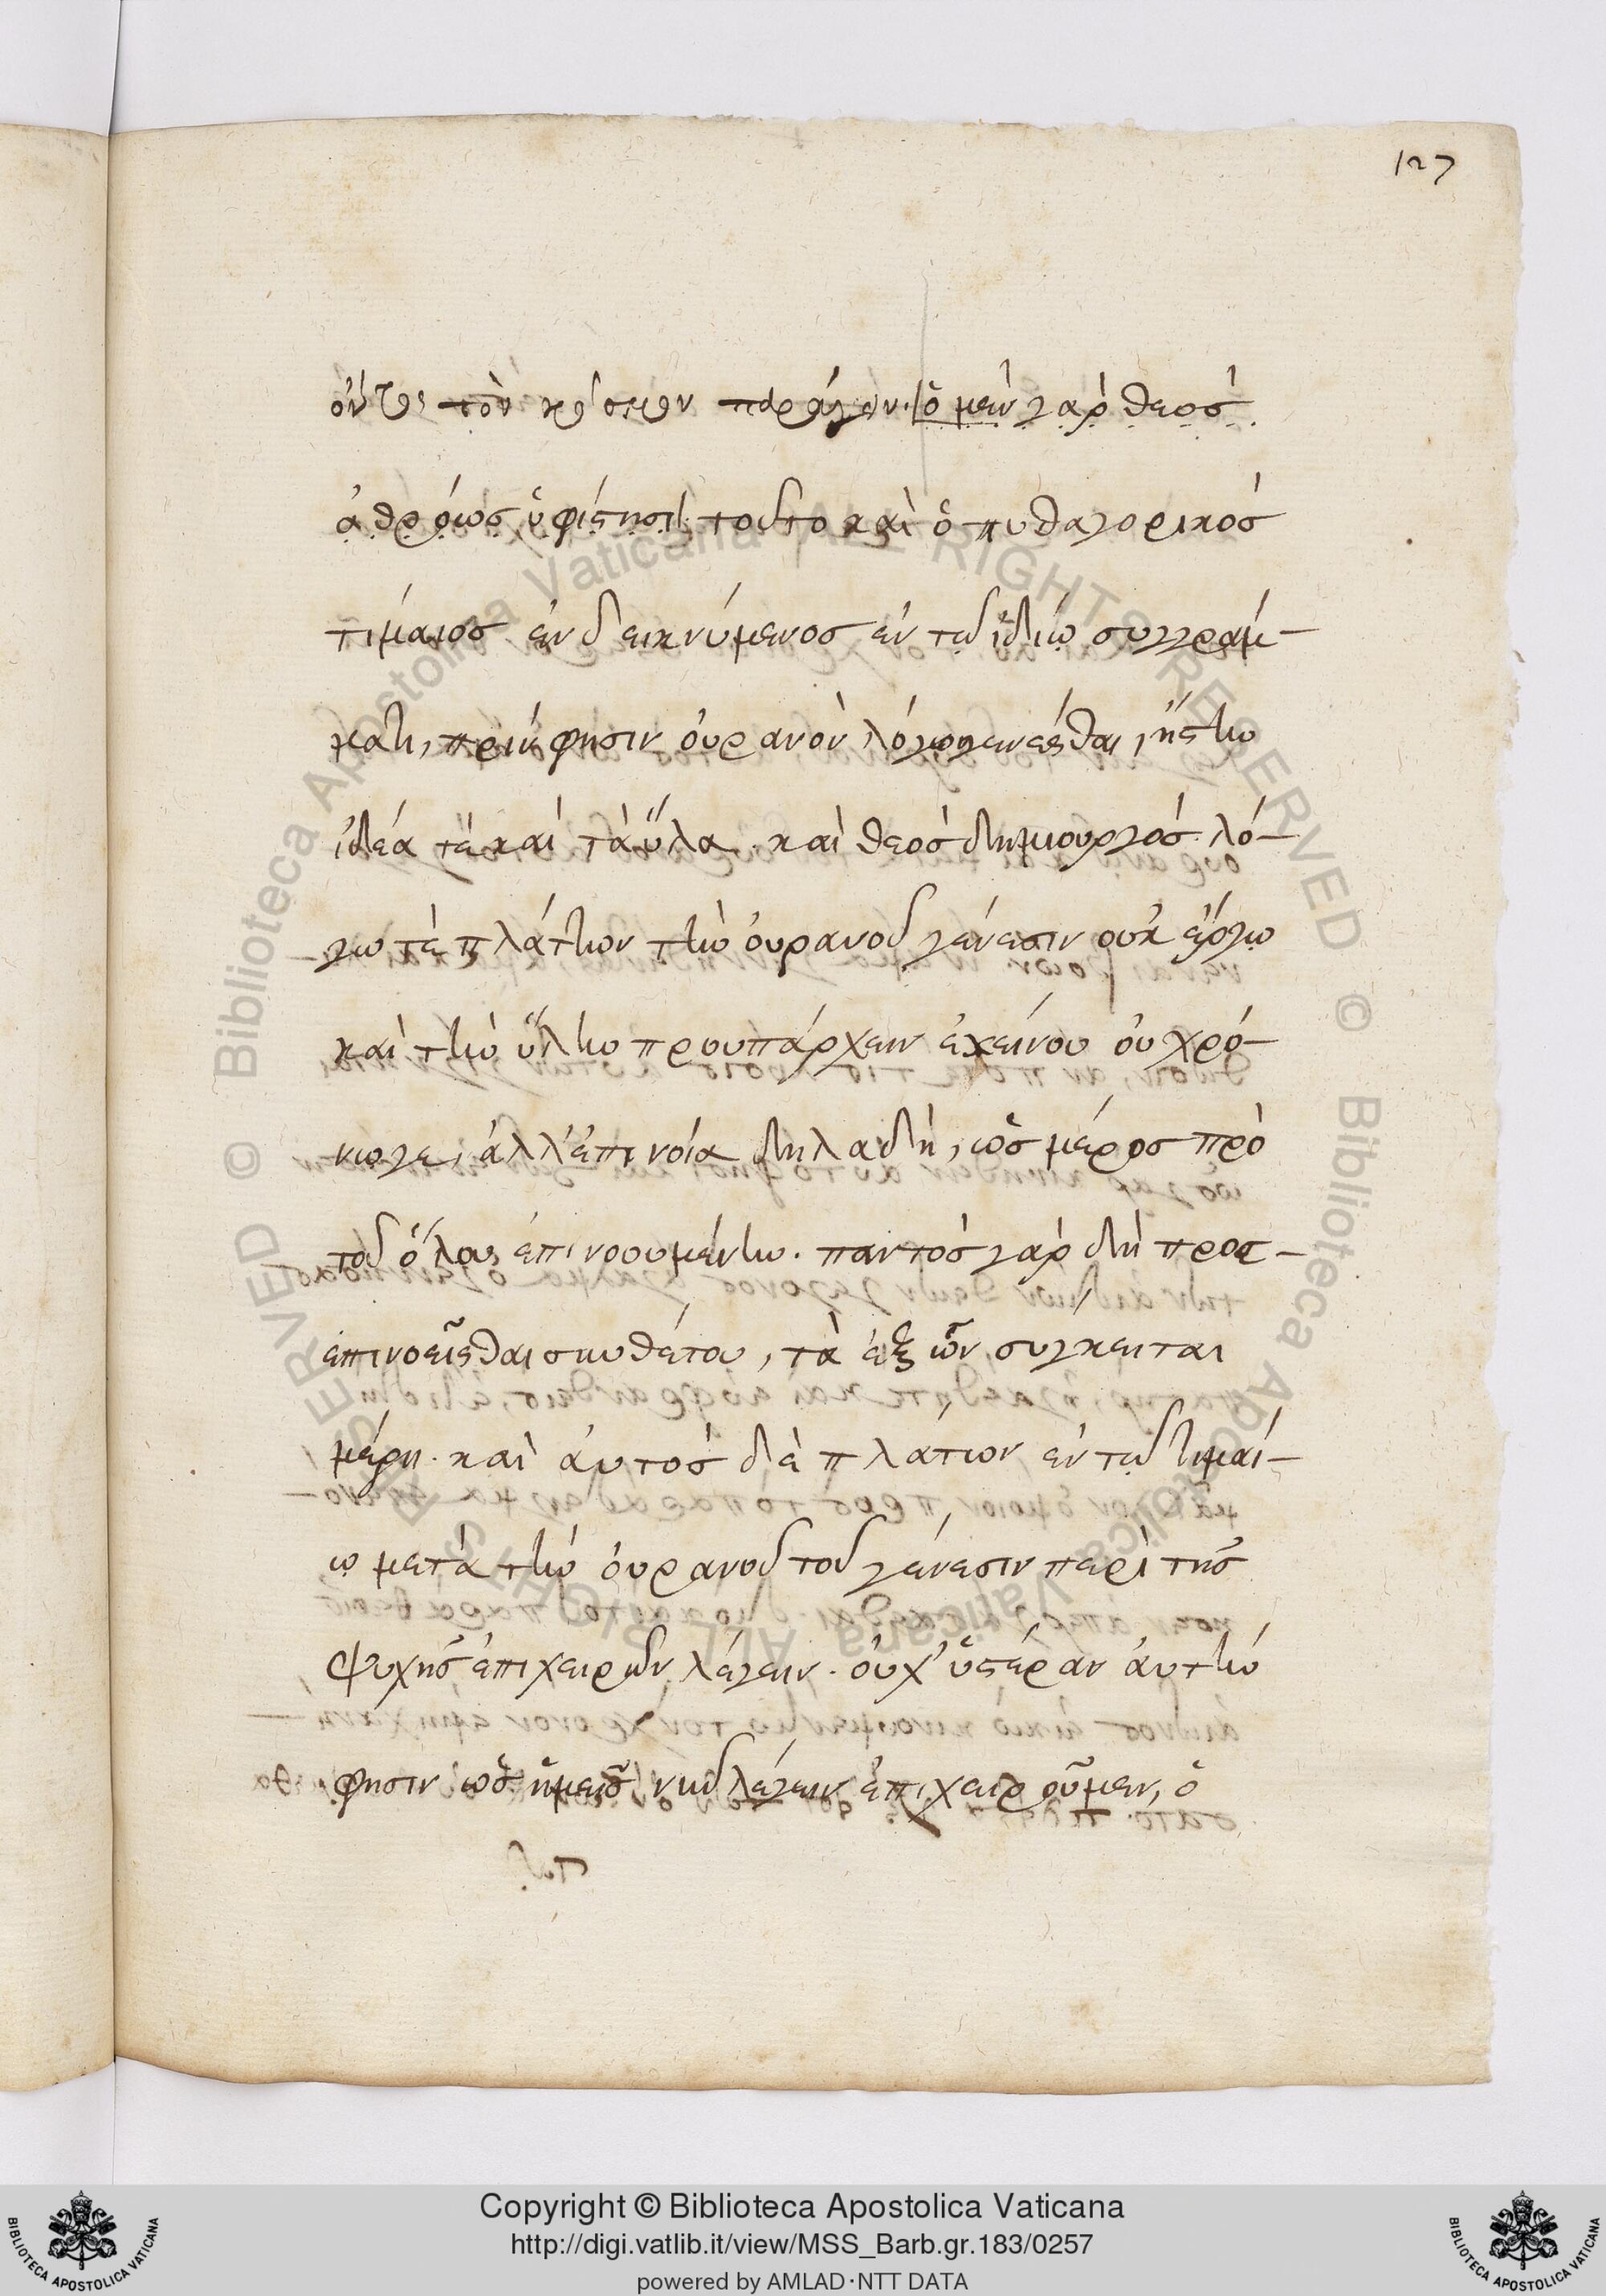 127
όντος τὸν κόσμον παράγων. ὁ μὲν γὰρ θεὸς
ἀθρόως ὑφίστησι. τοῦτο καὶ ὁ πυθαγορικὸς
τίμαιος ἐνδεικνύμενος ἐν τῶ ἰδίω συγγράμ-
ματι, πρὶν φησὶν οὐρανὸν λόγω γενέσθαι, ἤστην
ἰδέα τὲ καὶ τὰ ὕλα. καὶ θεὸς δημιουργὸς. λό-
γω τὲ πλάττων τὴν οὐρανοῦ γένεσιν οὐκ ἔργω
καὶ τὴν ὕλην προυπάρχειν ἐκείνου οὐ χρό-
νω γε, ἀλλ' ἐπινοία δηλαδὴ, ὡς μέρος πρὸ
τοῦ ὅλου ἐπινοουμένην. παντὸς γὰρ δὴ προσ-
επινοεῖσθαι συνθέτου, τὰ ἐξ ὧν σύγκειται
μέρη. καὶ αὐτὸς δὲ πλάτων ἐν τῶ τιμαί-
ω μετὰ τὴν οὐρανοῦ τοῦ γένεσιν περὶ τῆς
ψυχῆς ἐπιχειρῶν λέγειν. οὐχ' ὑστέραν αὐτὴν
φησὶν ὡς ἡμεῖς νῦν λέγειν ἐπιχειροῦμεν, ὁ
Copyright © Biblioteca Apostolica Vaticana
http://digi.vatlib.it/view/MSS_Barb.gr.183/0257
powered by AMLAD·NTT DATA
BIBLIOTECA APOSTOLICA VATICANA
BIBLIOTECA APOSTOLICA VATICANA
© Biblioteca Apostolica Vaticana ALL RIGHTS RESERVED © Biblioteca Apostolica Vaticana ALL RIGHTS RESERVED